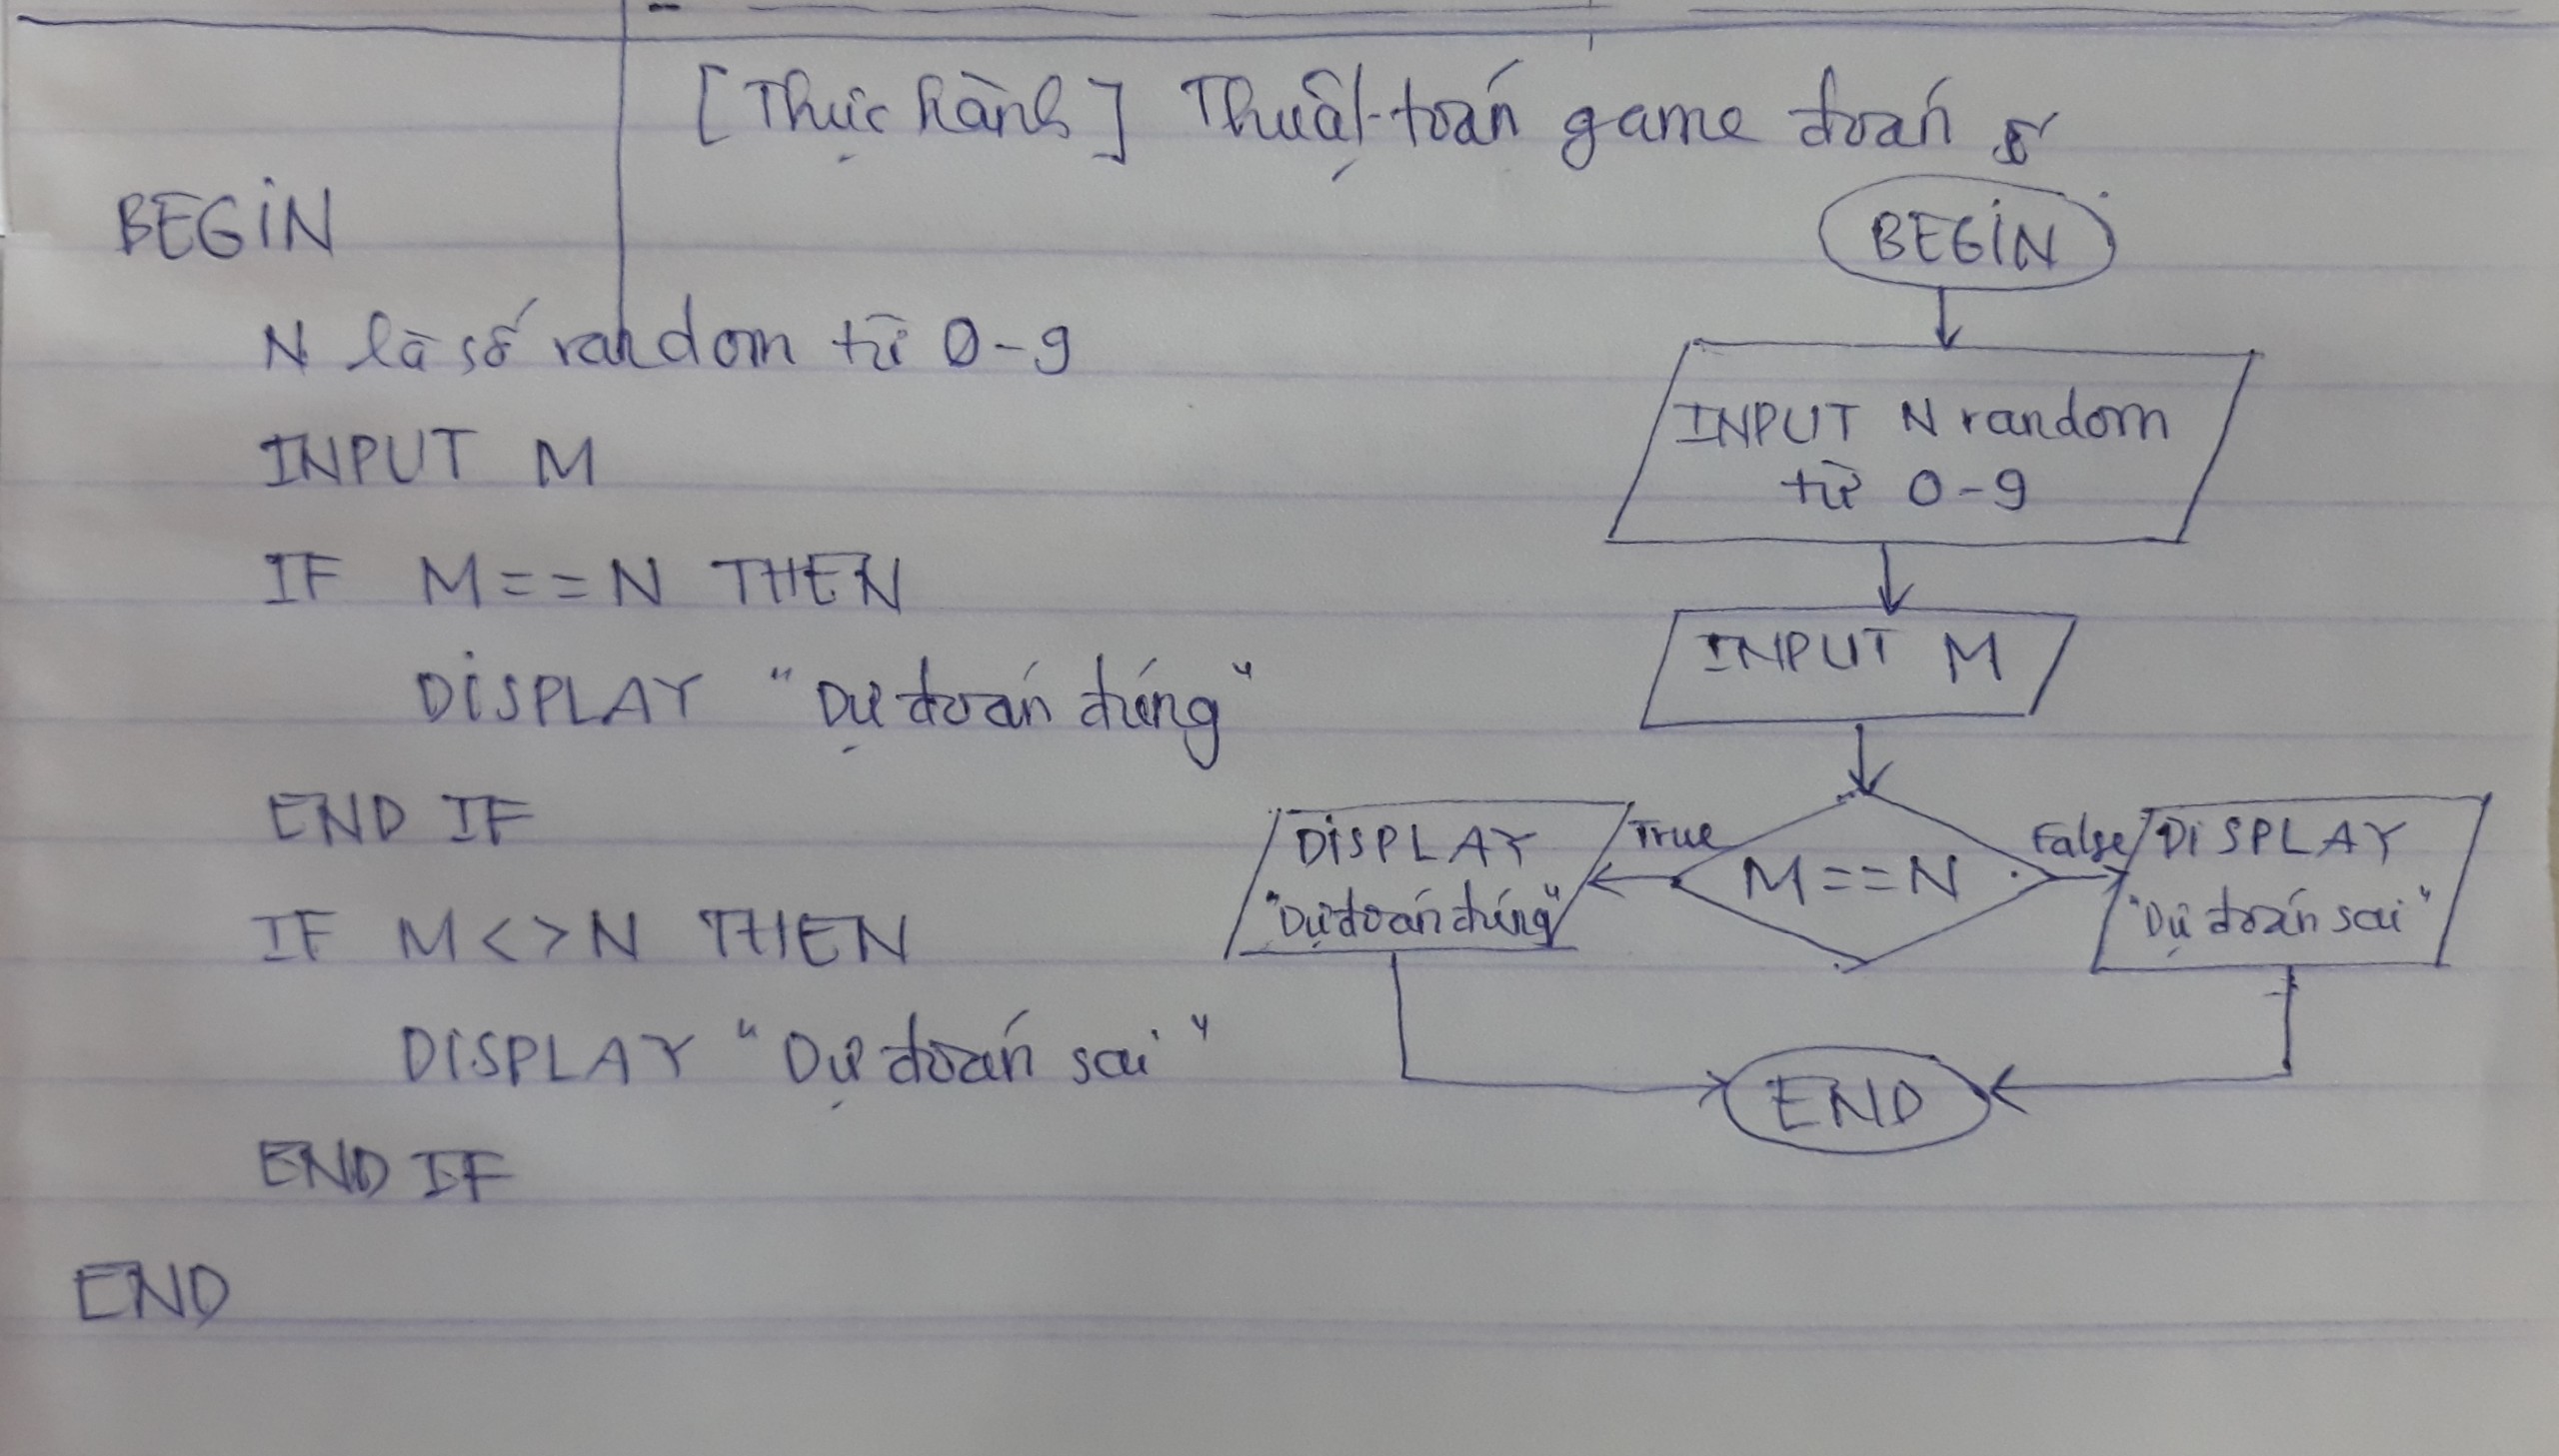 [Thực hành] Thuật toán game đoán số
BEGIN
N là số random từ 0-9
INPUT M
IF M==N THEN
DISPLAY "Dự đoán đúng"
END IF
IF M<>N THEN
DISPLAY "Dự đoán sai"
END IF
END
BEGIN
INPUT N random
từ 0-9
INPUT M
M==N
True
False
DISPLAY
"Dự đoán đúng"
DISPLAY
"Dự đoán sai"
END